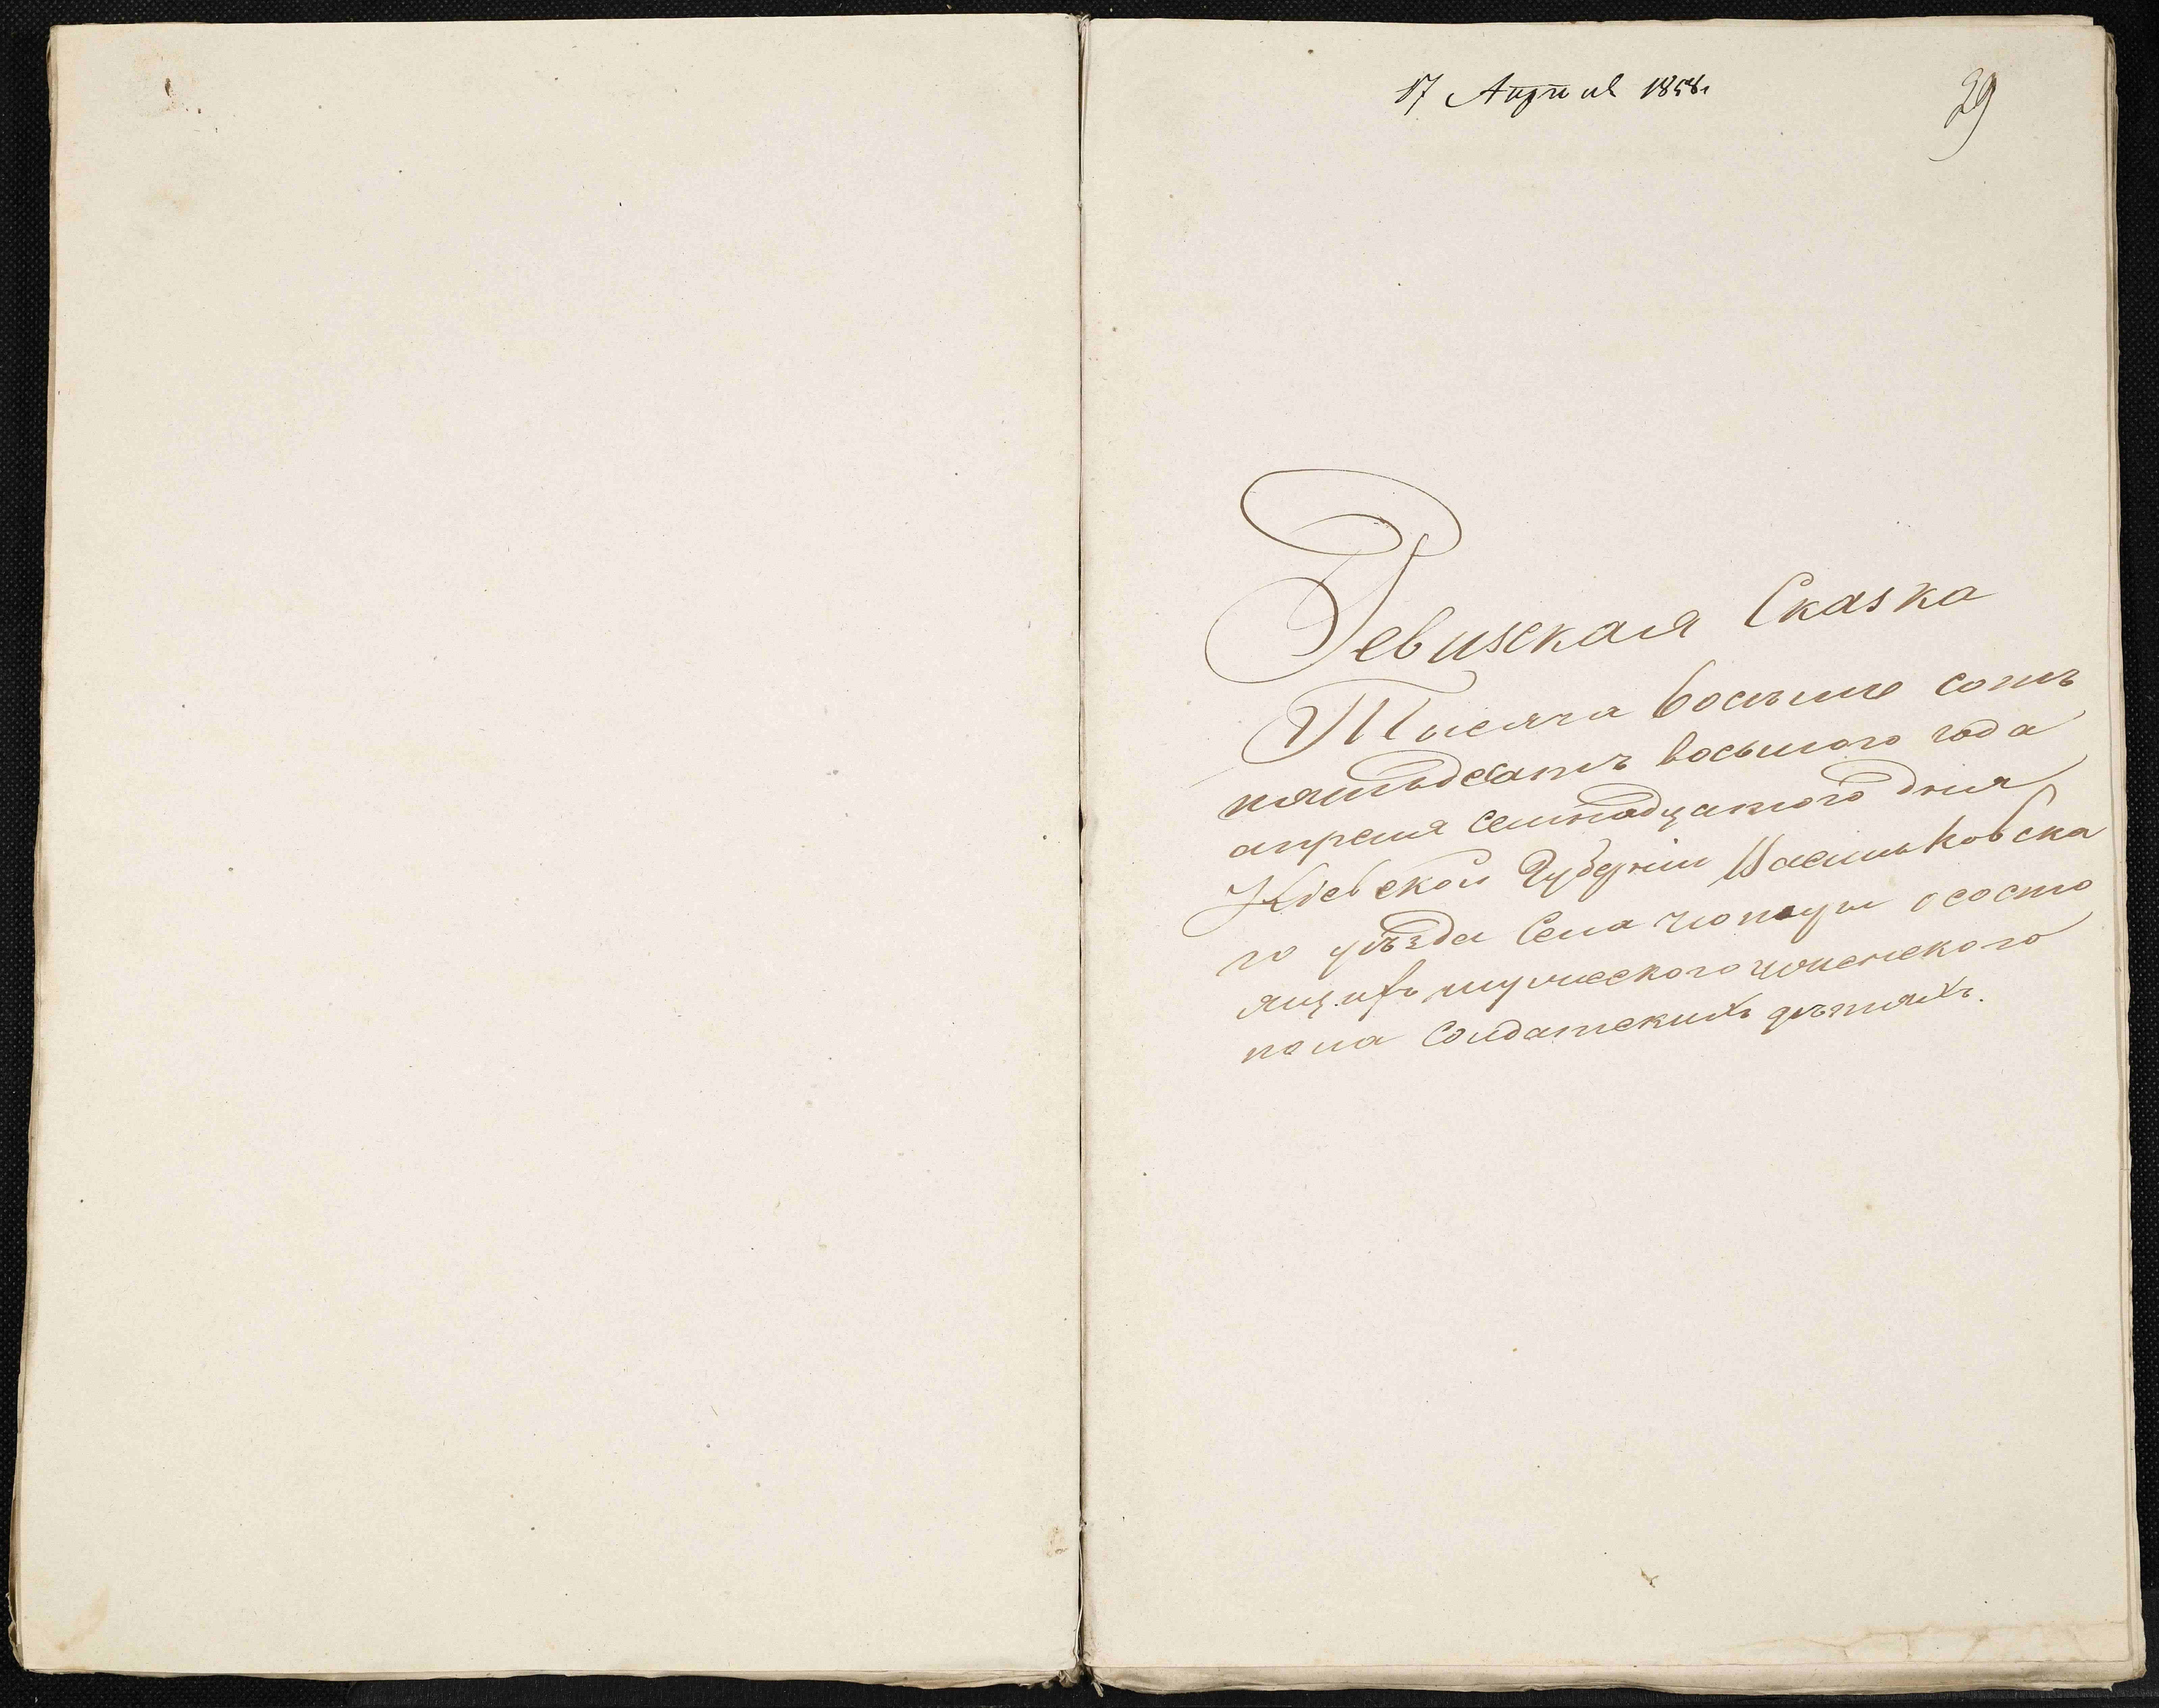 17 Апреля 1858.
29
Ревизская Сказка
Тысяча восъмъ сотъ
пятьдесатъ восьмого года
апреля семнадцатого дня
Кіевской Губерніи Васильковска
го уѣзда Села Чопкуры о состо
ящихъ мужескогоженского
пола Солдатскихъ дѣтяхъ.